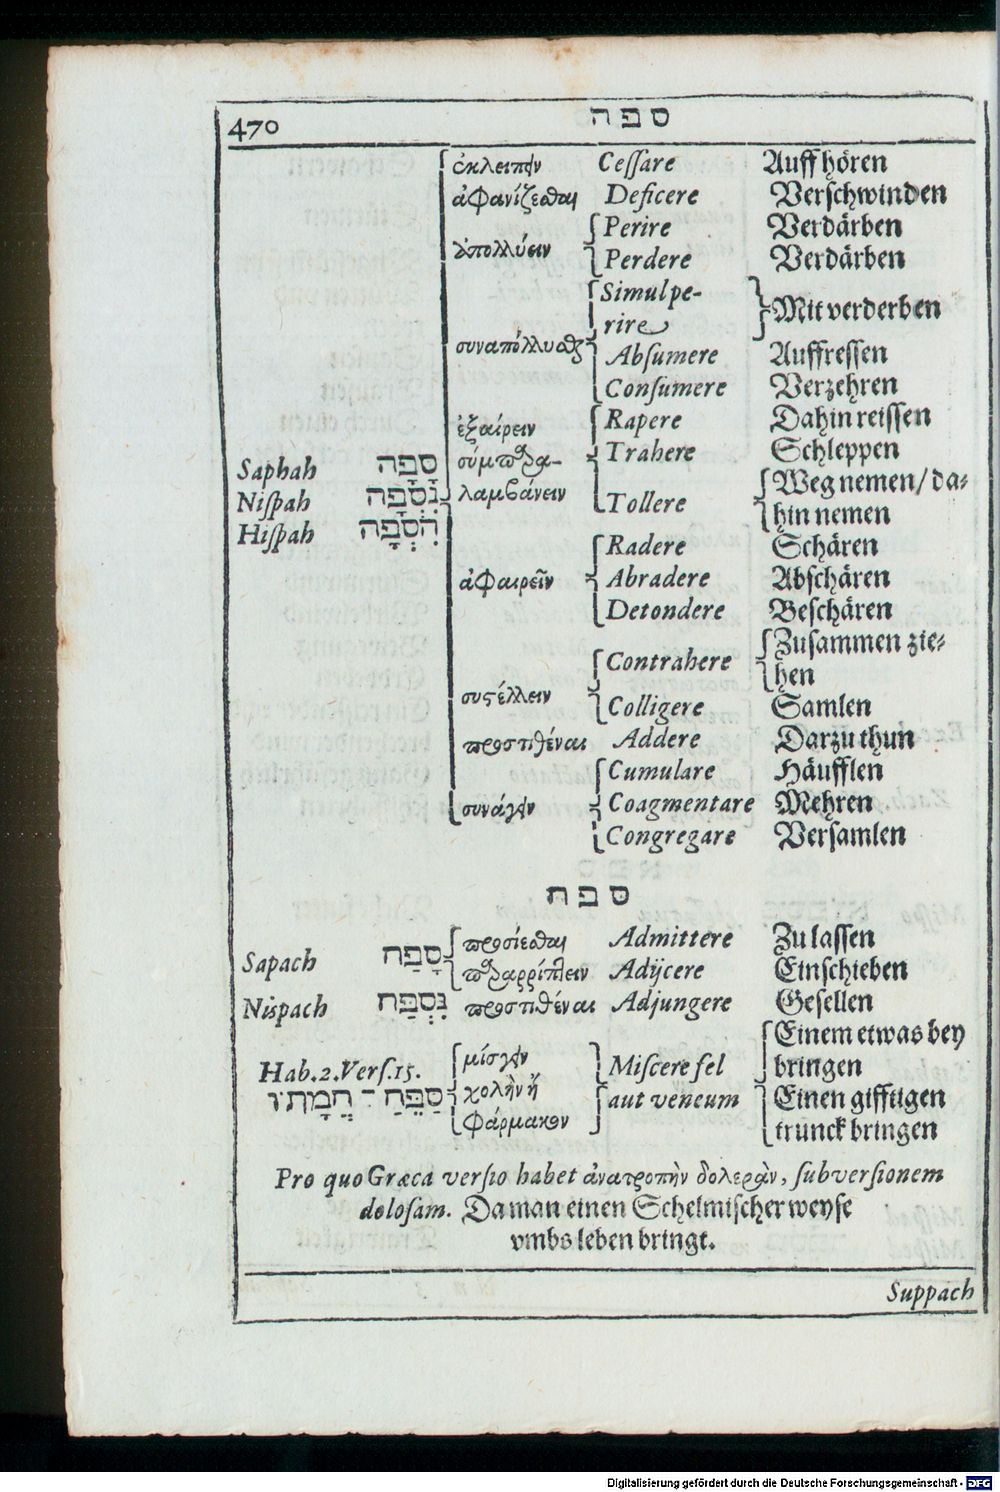 470 ספה
ἐκλειπεῖν Ceſſare Auffhören
ἀφανίζεσθαι Deficere Verſchwinden
Perire Verdärben
ἀπολλύειν
Perdere Verdärben
Simulpe-
Mit verderben
rire
συναπόλλυσθαι
Abſumere Auffreſſen
Conſumere Verzehren
ἐξαίρειν Rapere Dahin reiſſen
Saphah סָפָה συμπαρα- Trahere Schleppen
Niſpah נִסְפָּה λαμβάνειν Tollere Weg nemen/ da-
Hiſpah הִסְפָּה hin nemen
Radere Schären
ἀφαιρεῖν Abradere Abſchären
Detondere Beſchären
Contrahere Zuſammen zie-
hen
συστέλλειν
Colligere Samlen
προστιθέναι Addere Darzu thun
Cumulare Häufflen
συνάγειν Coagmentare Mehren
Congregare Verſamlen
ספח
Sapach סָפַח προσίεσθαι Admittere Zu laſſen
παραρρίπτειν Adijcere Einſchieben
Niſpach נִסְפַּח προστιθέναι Adjungere Geſellen
Einem etwas bey
Hab.2.Verſ.15. μίσγειν Miſcere fel bringen
סַפֵּחַ־חֲמָתְו χολὴν ἢ aut veneum Einen gifftigen
φάρμακον trunck bringen
Pro quo Græca verſio habet ἀνατροπὴν δολερὰν, ſubverſionem
doloſam. Da man einen Schelmiſcher weyſe
vmbs leben bringt.
Suppach
Digitalisierung gefördert durch die Deutsche Forschungsgemeinschaft - DFG